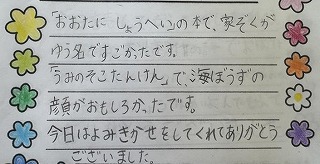 「おおたに しょうへい」の本で、家ぞくが
ゆう名ですごかったです。
「うみのそこたんけん」で、海ぼうずの
顔がおもしろかったです。
今日はよみきかせをしてくれてありがとう
ございました。